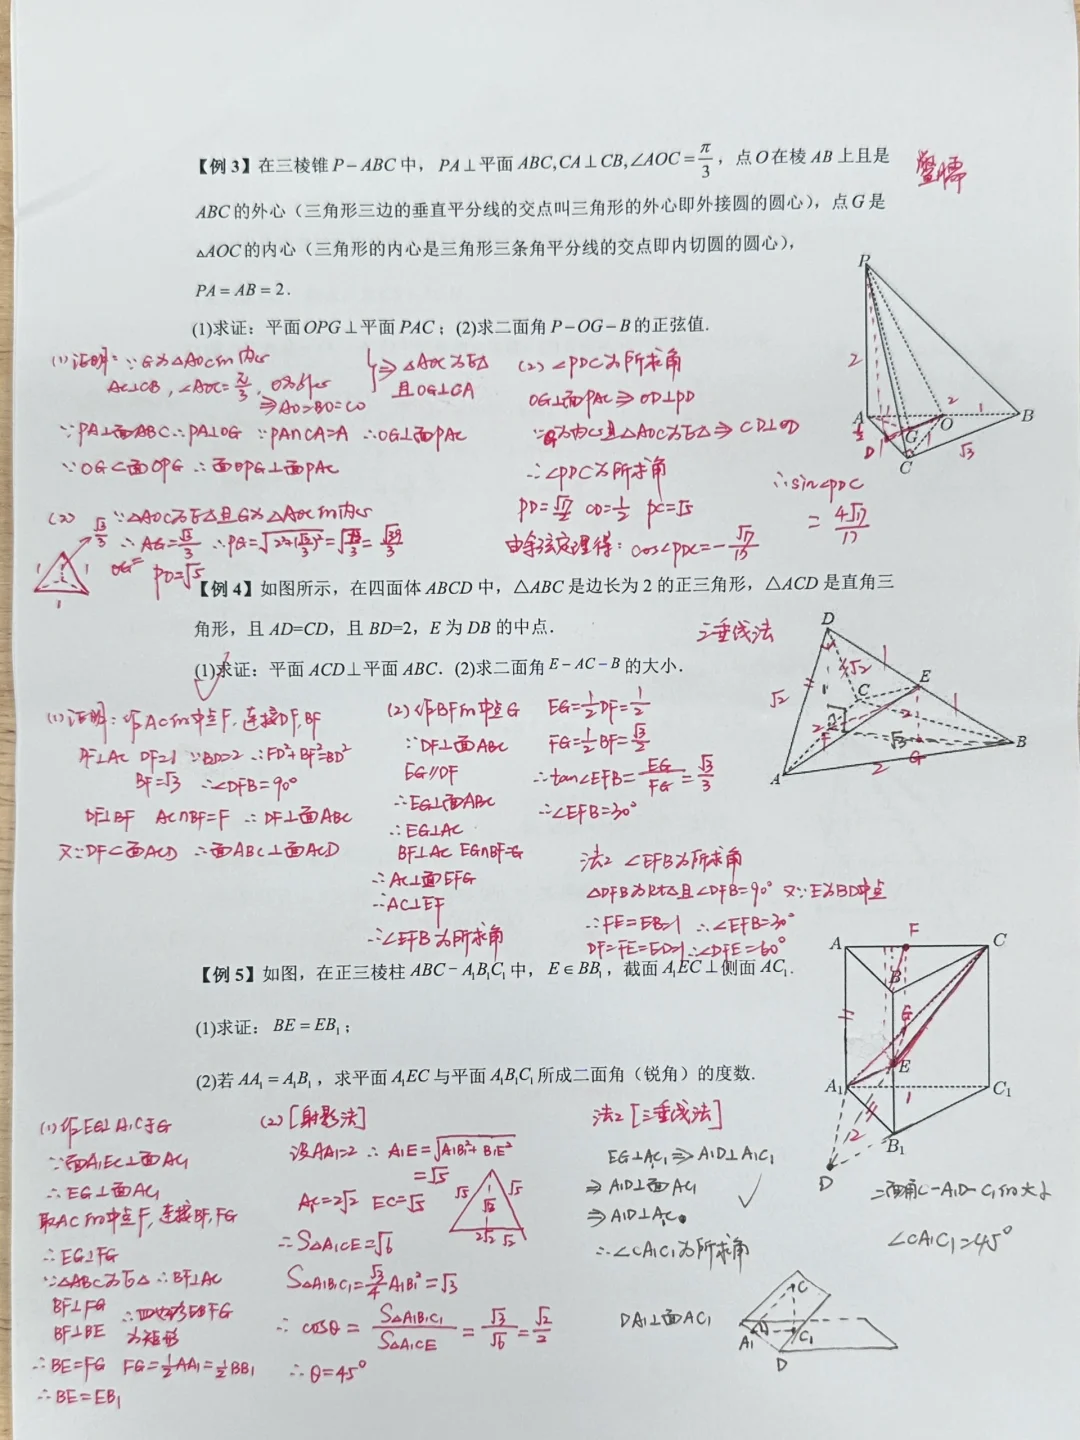 【例3】在三棱锥P-ABC中，PA⊥平面ABC,CA⊥CB,∠AOC=π/3，点O在棱AB上且是
鳖臑
ABC的外心（三角形三边的垂直平分线的交点叫三角形的外心即外接圆的圆心），点G是
△AOC的内心（三角形的内心是三角形三条角平分线的交点即内切圆的圆心），
PA=AB=2.
(1)求证：平面OPG⊥平面PAC；(2)求二面角P-OG-B的正弦值.
(1)证明：∵G为△AOC的内心
AC⊥CB，∠AOC=π/3，O为外心
⇒AO=BO=CO
⇒△AOC为正△
且OG⊥CA
∵PA⊥面ABC∴PA⊥OG ∵PA∩CA=A ∴OG⊥面PAC
∵OG⊂面OPG ∴面OPG⊥面PAC
(2) ∵△AOC为正△且G为△AOC的内心
∴AG=√3/3 ∴PG=√(2²+(√3/3)²)=
=√39/3
OG=
PO=√5
√3/3
1 1
1
(2)∠PDC为所求角
OG⊥面PAC⇒OD⊥PD
∵G为内心且△AOC为正△⇒CD⊥OD
∴∠PDC为所求角
PD=√17/2 CD=1/2 PC=√5
由余弦定理得：cos∠PDC=-√17/17
∴sin∠PDC
=4√17/17
P
2
A O B
2 1
1/2
D G 1
C √3
【例4】如图所示，在四面体ABCD中，△ABC是边长为2的正三角形，△ACD是直角三
角形，且AD=CD，且BD=2，E为DB的中点.
三垂线法
(1)求证：平面ACD⊥平面ABC.(2)求二面角E-AC-B的大小.
(1)证明：作AC的中点F，连接DF,BF
DF⊥AC DF=1 ∵BD=2 ∴FD²+BF²=BD²
BF=√3 ∴∠DFB=90°
DF⊥BF AC∩BF=F ∴DF⊥面ABC
又∵DF⊂面ACD ∴面ABC⊥面ACD
(2)作BF的中点G
∵DF⊥面ABC
EG∥DF
∴EG⊥面ABC
∴EG⊥AC
BF⊥AC EG∩BF=G
∴AC⊥面EFG
∴AC⊥EF
∴∠EFB为所求角
EG=1/2DF=1/2
FG=1/2BF=√3/2
∴tan∠EFB=EG/FG=√3/3
∴∠EFB=30°
法2 ∠EFB为所求角
△DFB为Rt△且∠DFB=90° 又∵E为BD中点
∴FE=EB=1 ∴∠EFB=30°
DF=FE=ED=1∴∠DFE=60°
D
√2 √2 1
C E
1 2 1
F √3 B
A 2 G
【例5】如图，在正三棱柱ABC-A₁B₁C₁中，E∈BB₁，截面A₁EC⊥侧面AC₁.
(1)求证：BE=EB₁；
(2)若AA₁=A₁B₁，求平面A₁EC与平面A₁B₁C₁所成二面角（锐角）的度数.
(1)作EG⊥A₁C于G
∵面A₁EC⊥面AC₁
∴EG⊥面AC₁
取AC的中点F，连接BF,FG
∴EG⊥FG
∵△ABC为正△∴BF⊥AC
BF⊥FG ∴四边形EBFG
BF⊥BE 为矩形
∴BE=FG FG=1/2AA₁=1/2BB₁
∴BE=EB₁
(2)[射影法]
设AA₁=2 ∴A₁E=√(A₁B₁²+B₁E²)
=√5
A₁C=2√2 EC=√5
∴S△A₁CE=√6
S△A₁B₁C₁=√3/4 A₁B₁²=√3
∴cosθ=S△A₁B₁C₁/S△A₁CE=√3/√6=√2/2
∴θ=45°
√5 √5
2√2 √2
法2[三垂线法]
EG⊥A₁C₁⇒A₁D⊥A₁C₁
⇒A₁D⊥面AC₁
⇒A₁D⊥A₁C
∴∠CA₁C₁为所求角
DA₁⊥面AC₁
A F C
B
G
E
A₁ 1 C₁
2 B₁
D
二面角C-A₁D-C₁的大小
∠CA₁C₁=45°
C
A₁ C₁
D